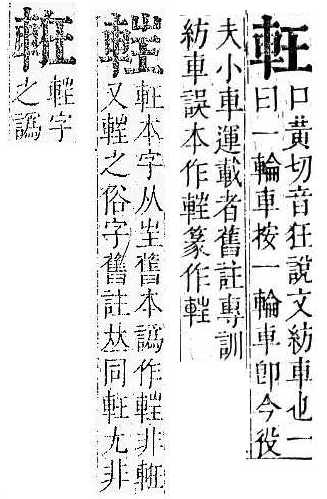 軖
口黃切音狂說文紡車也一
曰一輪車按一輪車卽今役
夫小車運載者舊註專訓
紡車誤本作篆作
軖本字从㞷舊本譌作非軭
又之俗字舊註𠀤同軖尤非
字
之譌